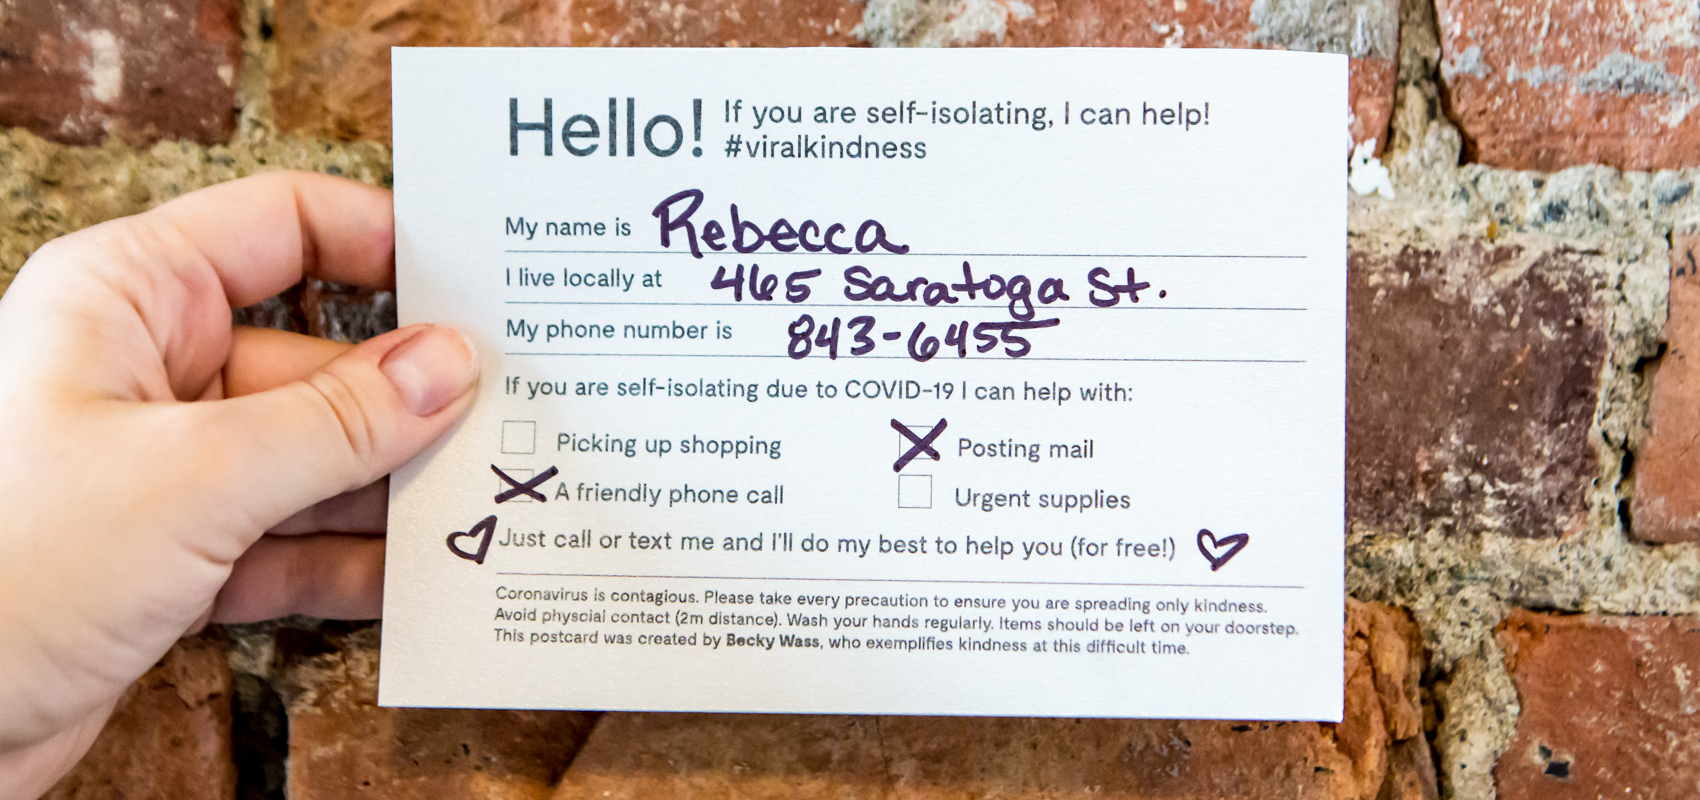 Hello! If you are self-isolating, I can help!
#viralkindness
My name is Rebecca
I live locally at 465 Saratoga St.
My phone number is 843-6455
If you are self-isolating due to COVID-19 I can help with:
Picking up shopping Posting mail
A friendly phone call Urgent supplies
Just call or text me and I'll do my best to help you (for free!)
Coronavirus is contagious. Please take every precaution to ensure you are spreading only kindness.
Avoid physcial contact (2m distance). Wash your hands regularly. Items should be left on your doorstep.
This postcard was created by Becky Wass, who exemplifies kindness at this difficult time.